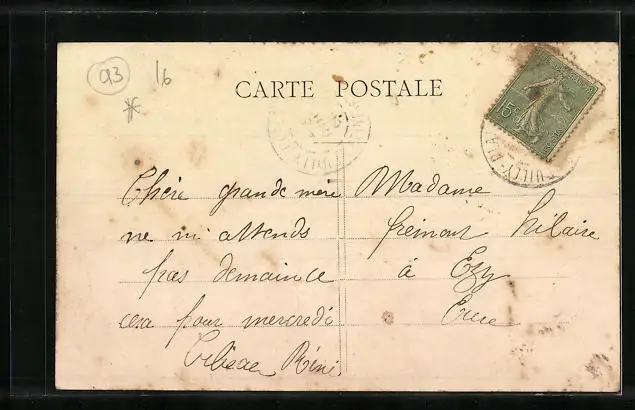 93 16
CARTE POSTALE
15c
Chère grande mère
ne m'attends
pas demaince
cera pour mercredi
Réné
Madame
frémont hilaire
à Ezy
Eure